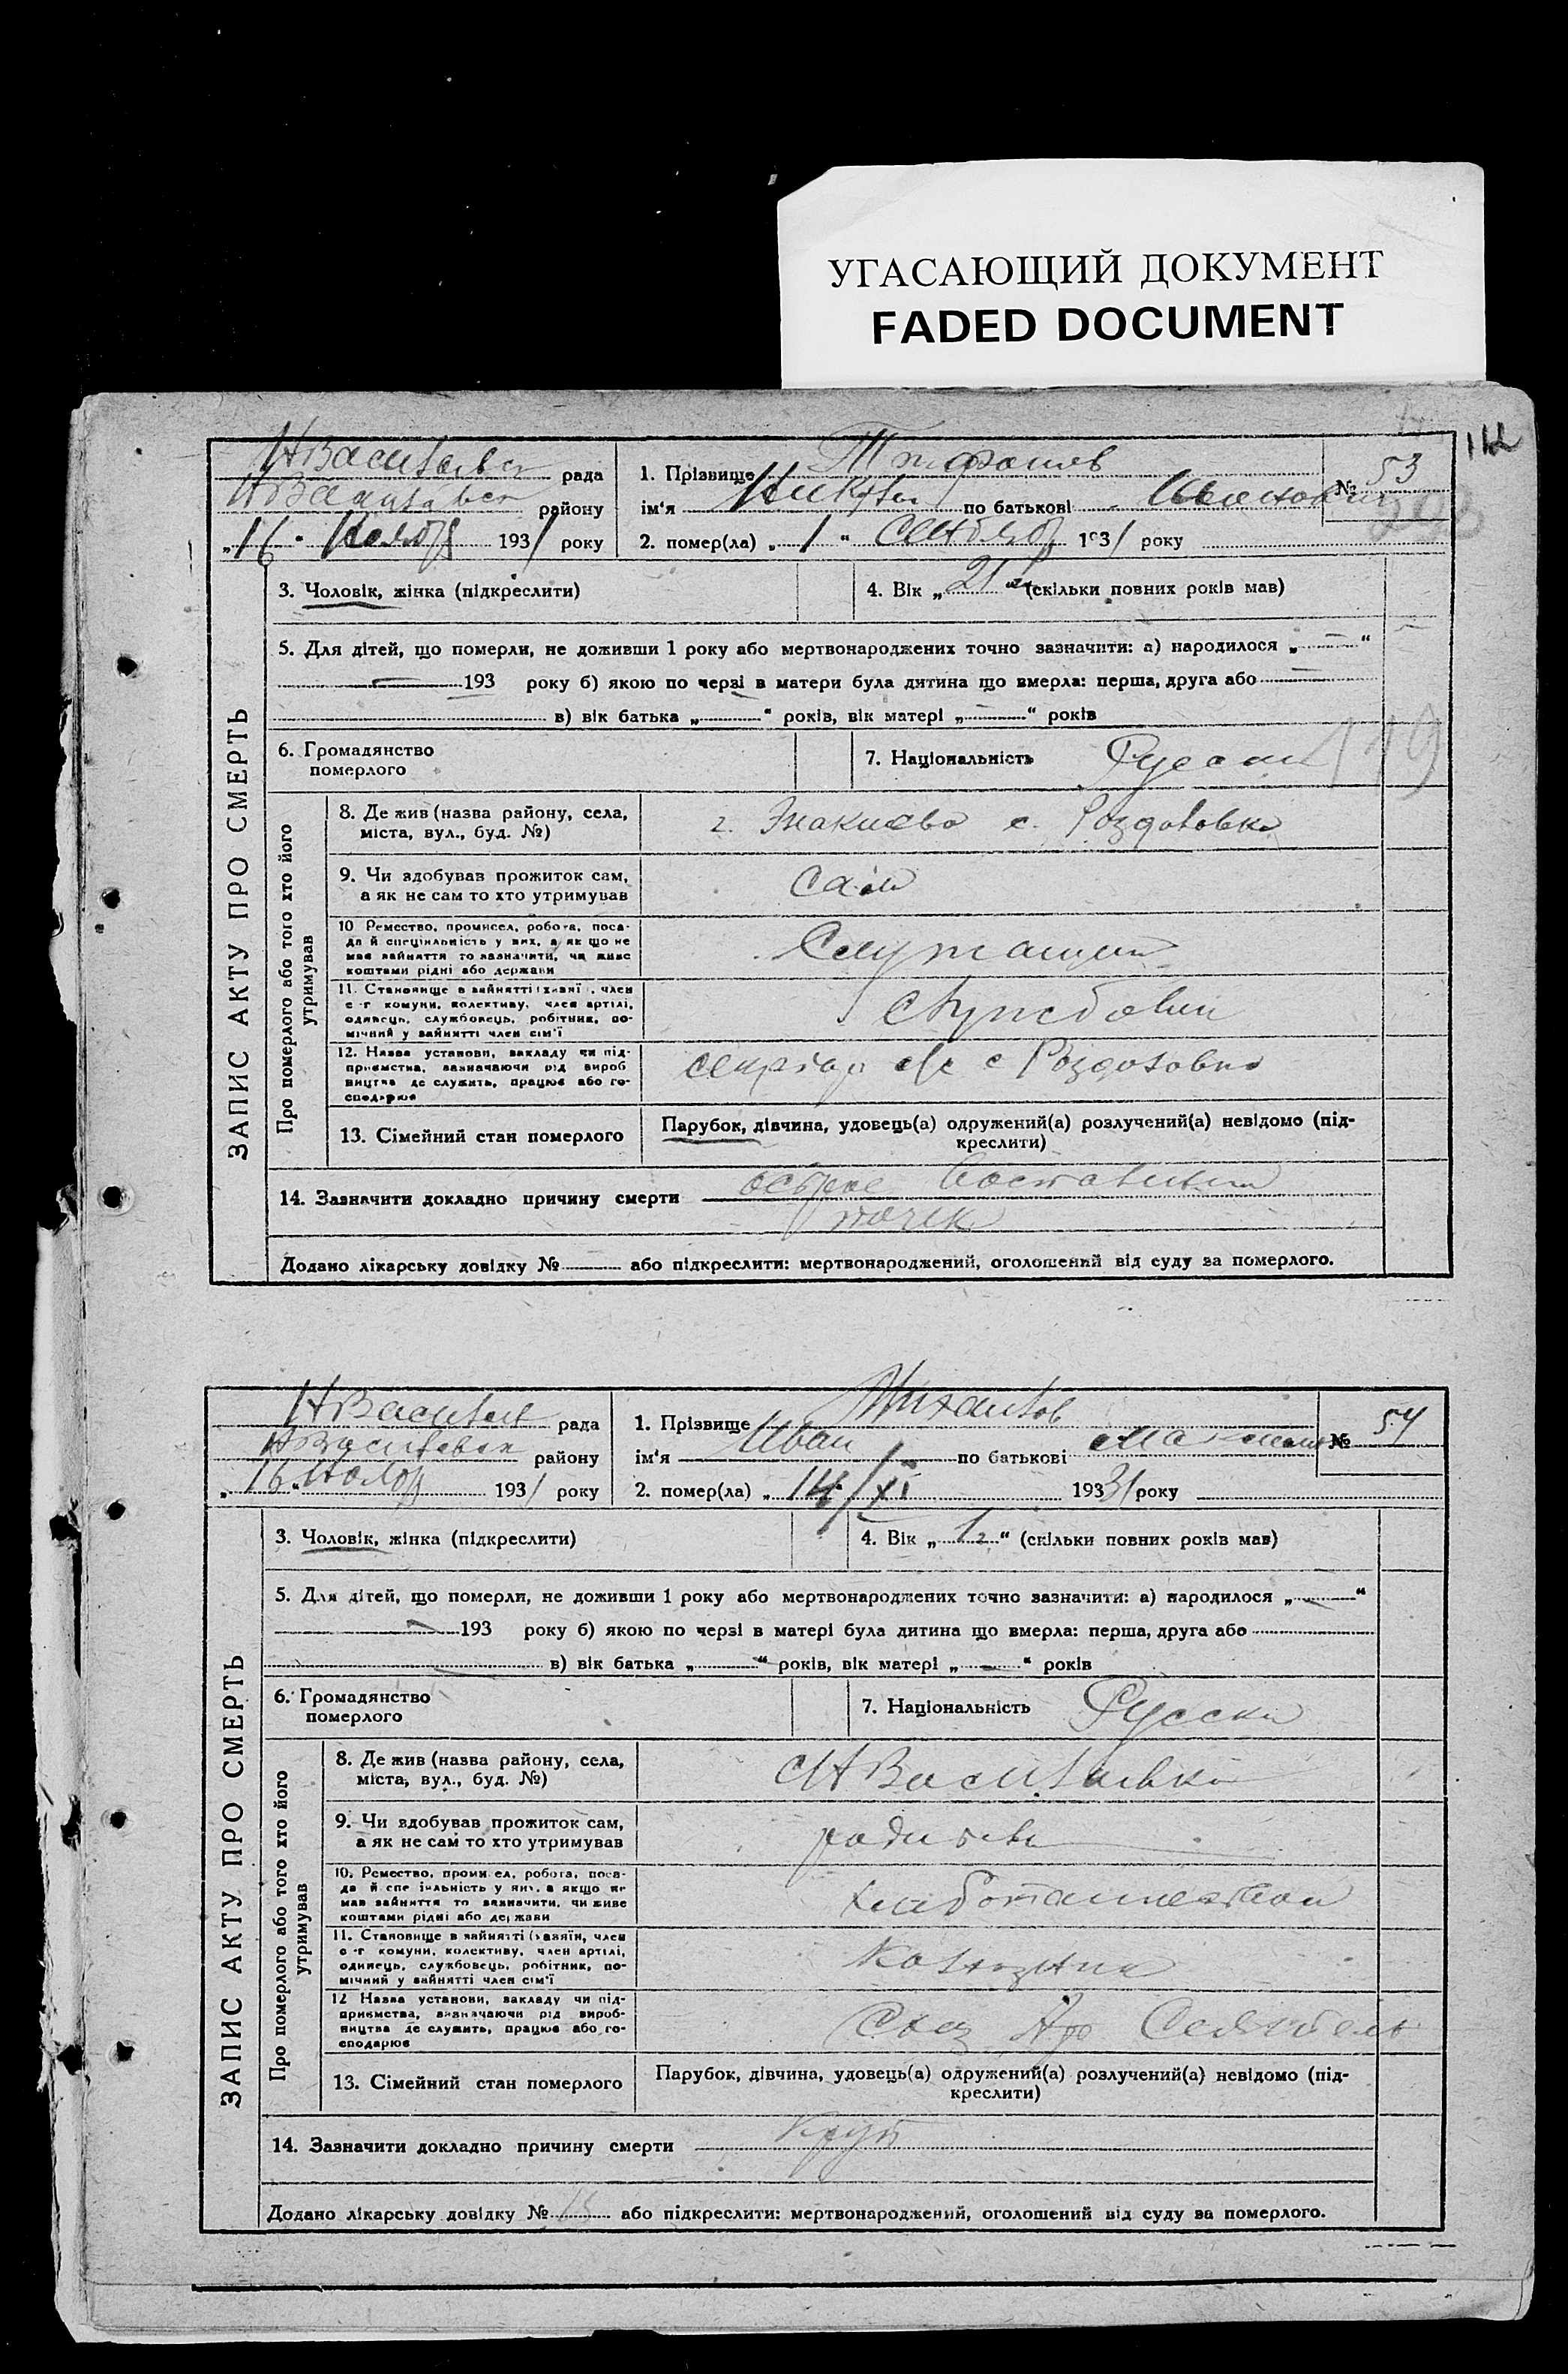 УГАСАЮЩИЙ ДОКУМЕНТ
FADED DOCUMENT
112
ЗАПИС АКТУ ПРО СМЕРТЬ
НВасильевск рада
НВасильевск району
„16" Ноября 1931 року
1. Прізвище
№ 53
ім'я по батькові Иванович
2. помер(ла) „1" Сентября 1931 року
3. Чоловік, жінка (підкреслити)
4. Вік „21" (скільки повних років мав)
5. Для дітей, що померли, не доживши 1 року або мертвонароджених точно зазначити: а) народилося „—"
193 року б) якою по черзі в матери була дитина що вмерла: перша, друга або
в) вік батька „—" років, вік матері „—" років
6. Громадянство померлого
7. Національність Русский
119
Про померлого або того хто його утримував
8. Де жив (назва району, села, міста, вул., буд. №)
г. Энакиево с. Роздоловка
9. Чи здобував прожиток сам, а як не сам то хто утримував
сам
10 Ремество, промисел, робота, посада й спеціяльність у них, а як що не мав зайняття то зазначити, чи живе коштами рідні або держави
Служащий
11. Становище в зайнятті (хазяїн, член с-г комуни, колективу, член артілі, одинець, службовець, робітник, помічний у зайнятті член сім'ї
Службовец
12. Назва установи, закладу чи підприємства, зазначаючи рід виробництва де служить, працює або господарює
секретар с/с с Роздоловка
13. Сімейний стан померлого
Парубок, дівчина, удовець(а) одружений(а) розлучений(а) невідомо (підкреслити)
14. Зазначити докладно причину смерти острое воспаление
почек
Додано лікарську довідку № або підкреслити: мертвонароджений, оголошений від суду за померлого.
ЗАПИС АКТУ ПРО СМЕРТЬ
НВасильев рада
НВасильевск району
„16" Ноября 1931 року
1. Прізвище
№ 54
ім'я Иван по батькові
2. помер(ла) „14/XI 1931 року
3. Чоловік, жінка (підкреслити)
4. Вік „1 г." (скільки повних років мав)
5. Для дітей, що померли, не доживши 1 року або мертвонароджених точно зазначити: а) народилося „—"
193 року б) якою по черзі в матері була дитина що вмерла: перша, друга або
в) вік батька „—" років, вік матері „—" років
6. Громадянство померлого
7. Національність Русски
Про померлого або того хто його утримував
8. Де жив (назва району, села, міста, вул., буд. №)
с НВасильевка
9. Чи здобував прожиток сам, а як не сам то хто утримував
родители
10. Ремество, промисел, робота, посада й спеціяльність у них, а якщо не мав зайняття то зазначити, чи живе коштами рідні або держави
11. Становище в зайнятті (хазяїн, член с-г комуни, колективу, член артілі, одинець, службовець, робітник, помічний у зайнятті член сім'ї
Колхозник
12 Назва установи, закладу чи підприємства, зазначаючи рід виробництва де служить, працює або господарює
13. Сімейний стан померлого
Парубок, дівчина, удовець(а) одружений(а) розлучений(а) невідомо (підкреслити)
14. Зазначити докладно причину смерти Круп
Додано лікарську довідку № 13 або підкреслити: мертвонароджений, оголошений від суду за померлого.